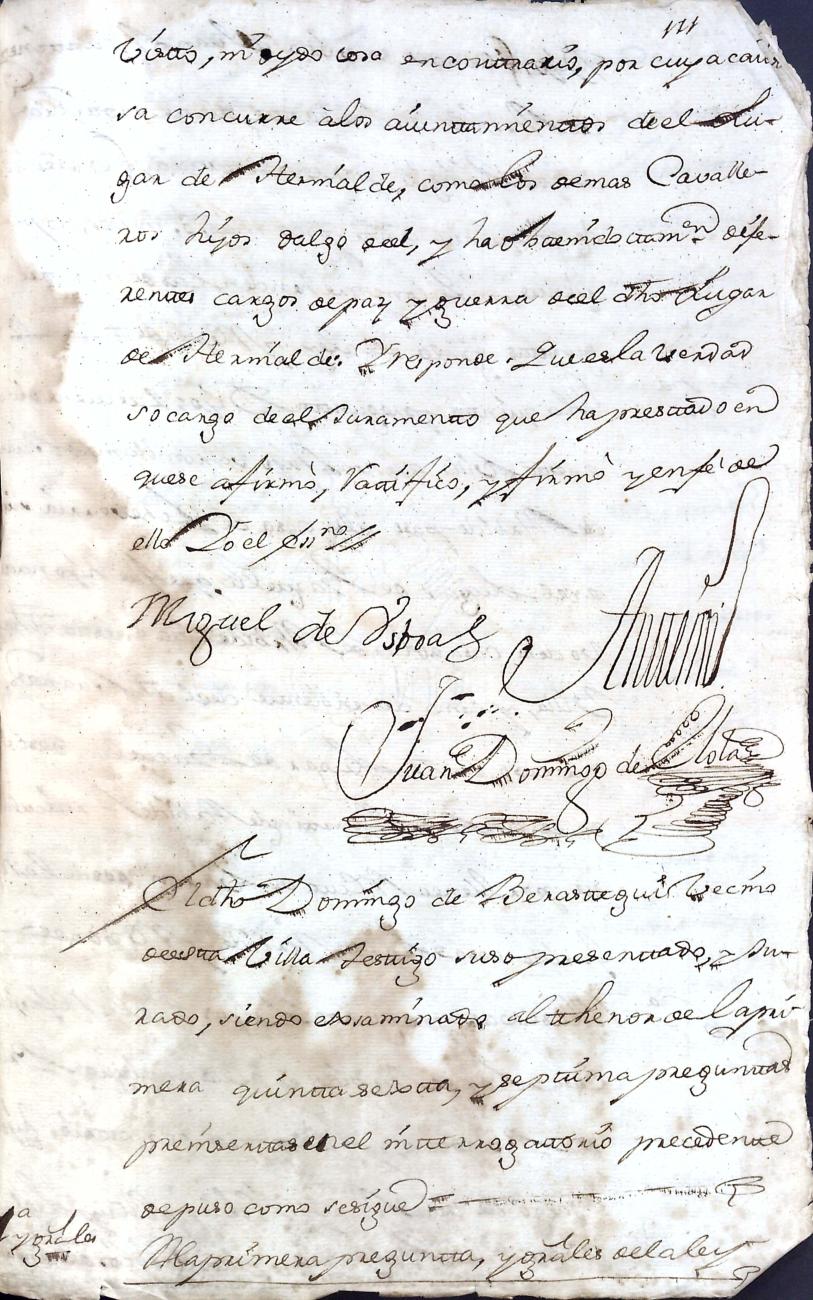 111
Visto, ni oydo cosa en contrario, por cuya cau-
sa concurre à los aiuntamientos de el Lu-
gar de Hernialde, como los demas Cavalle-
ros hijos dalgo de el, y ha obtenido tamvn dife-
rentes cargos de paz y guerra de el dho Lugar
de Hernialde. Y responde. Que es la verdad
so cargo de el Juramento que ha prestado en
que se afirmò, Ratifico, y firmò y en feè de
ello Yo el ssno
Miguel de Ysboa
Antemi
Juan Domingo de
El dho Domingo de Berastegui Vecino
de esta Villa testigo suso presentado, y Ju-
rado, siendo exsaminado al thenor de la pri-
mera quinta sexta, y septima preguntas
preinsertas en el interrogatorio precedente
depuso como se sigue
1a y grāles
A la primera pregunta, y grāles de la ley